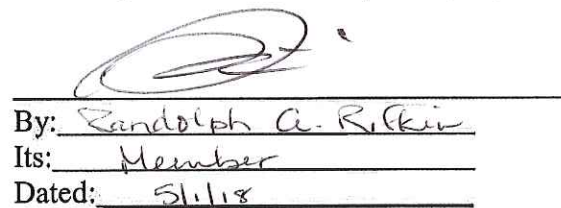 By: Randolph A. Rifkin
Its: Member
Dated: 5/1/18